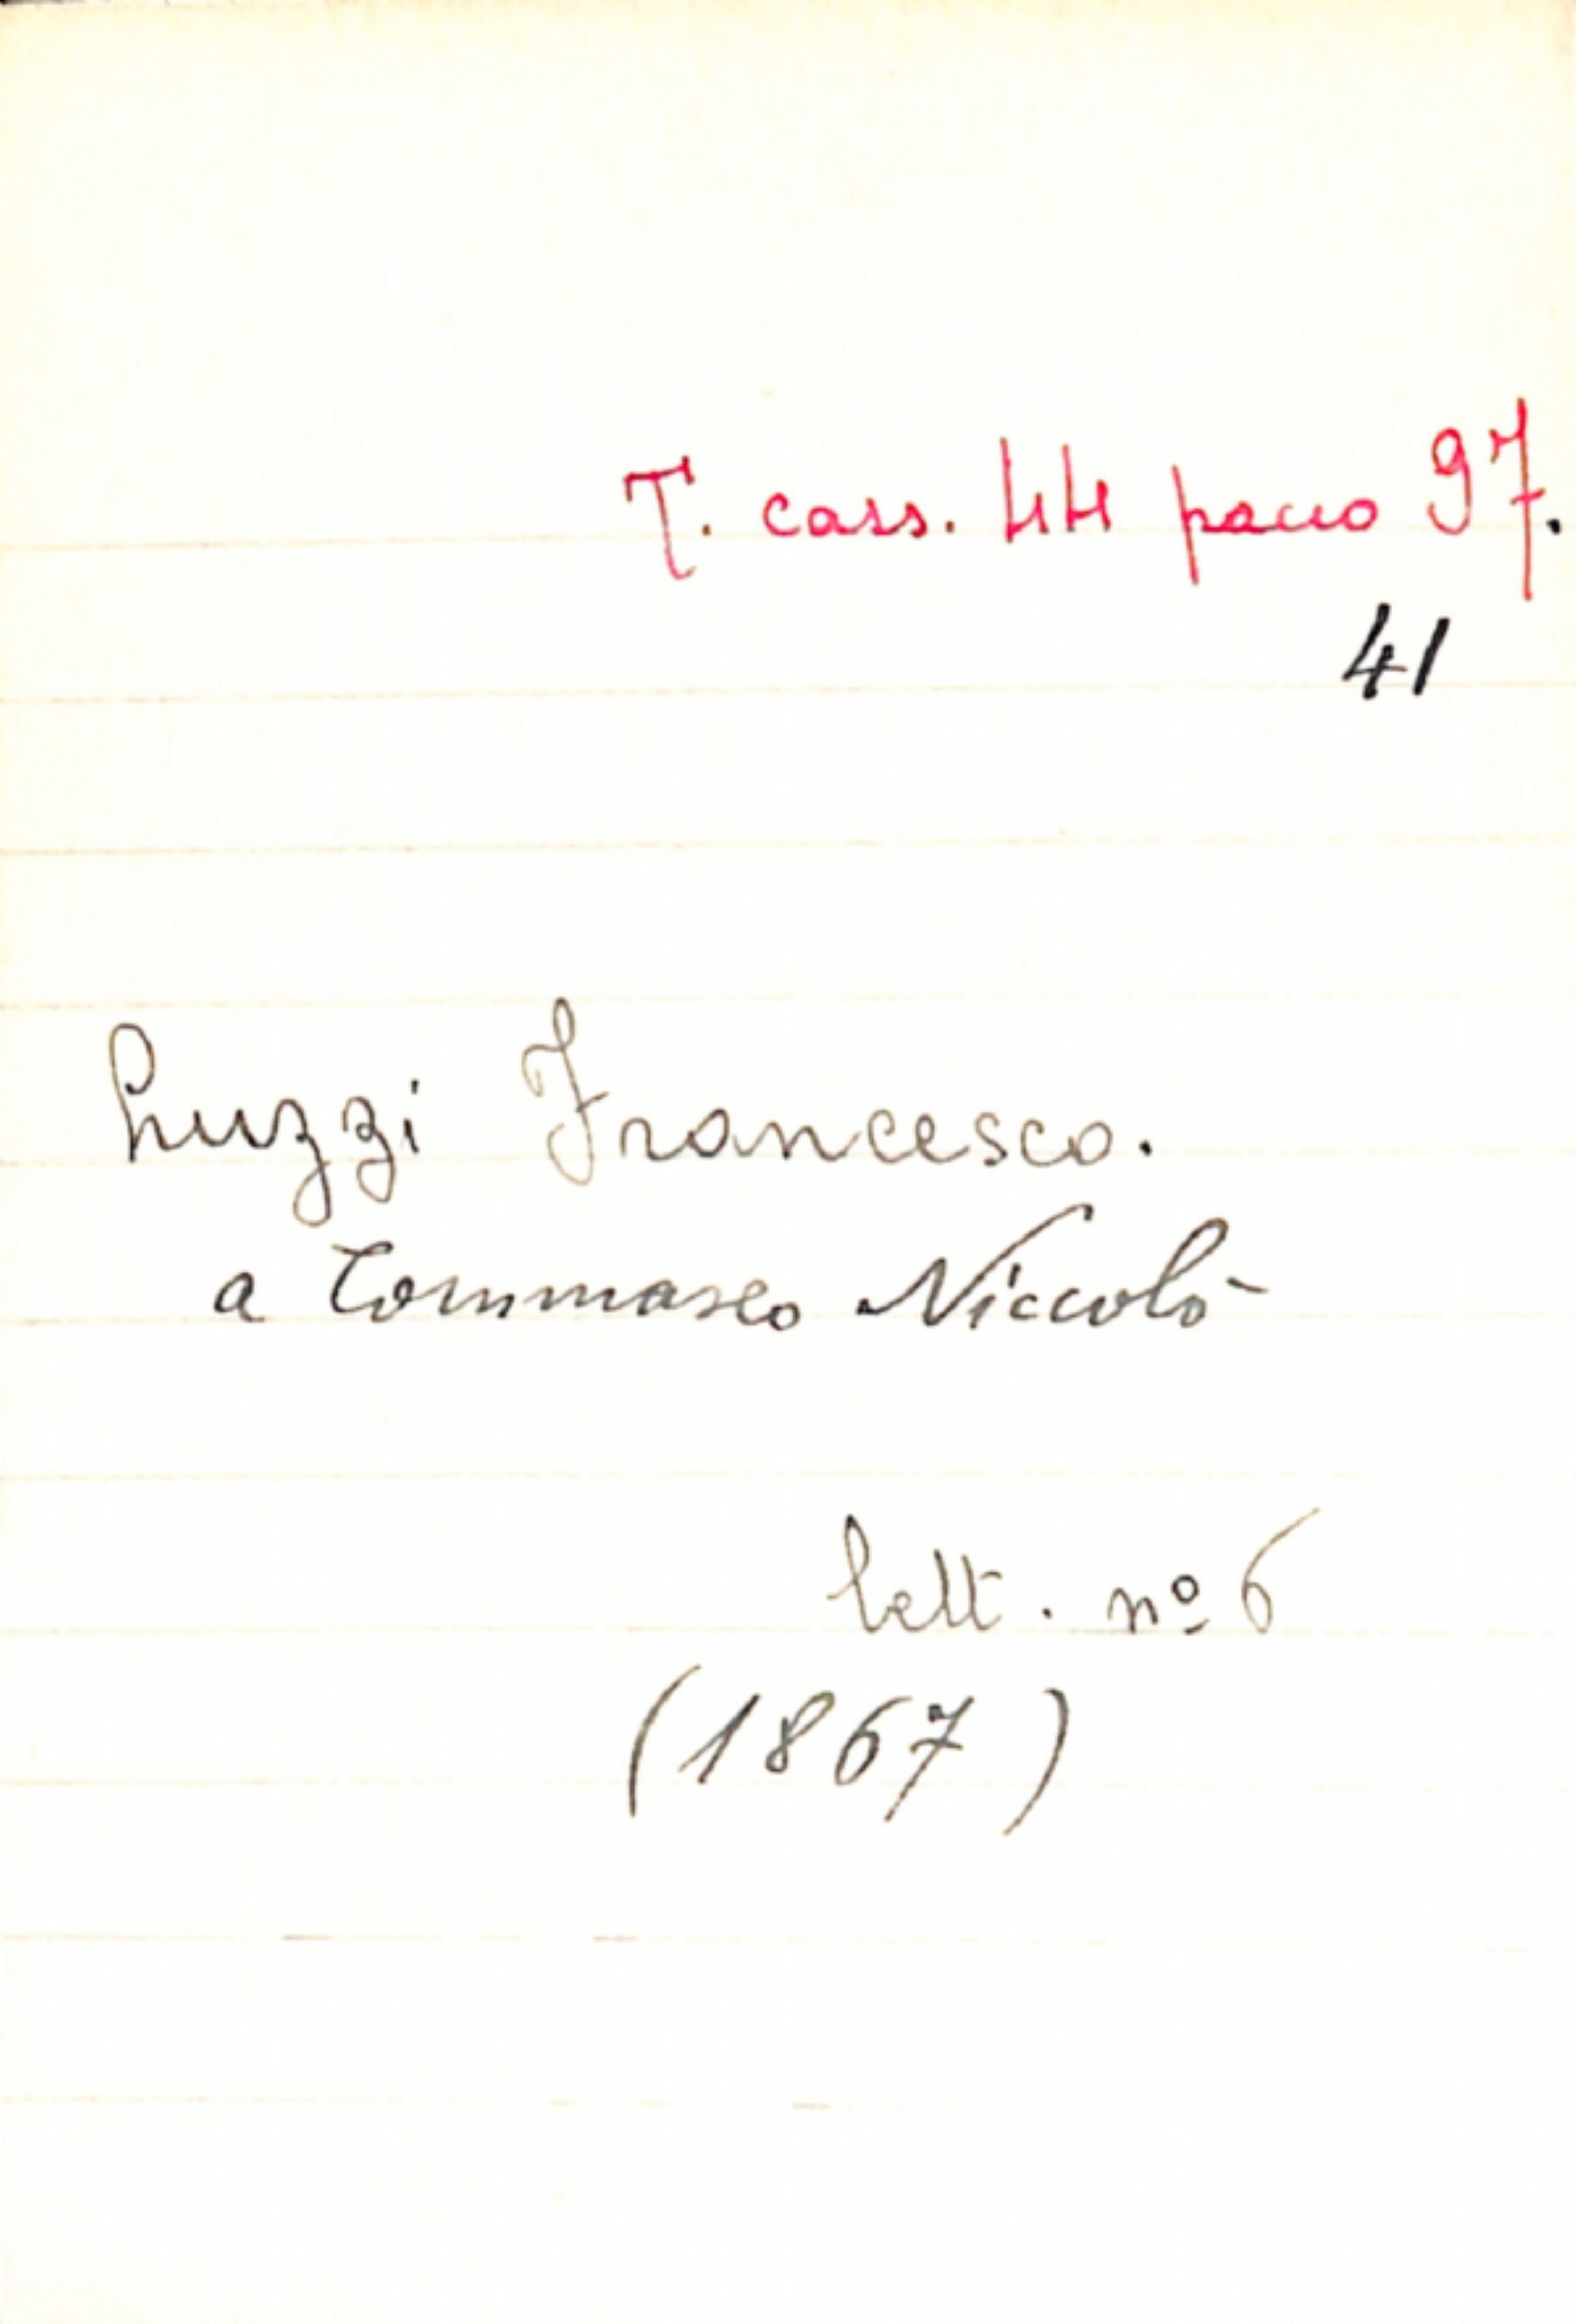 T. cass. 44 pacco 97.
41
Luzzi Francesco.
a Tommaseo Niccolò
lett. nº 6
(1867)